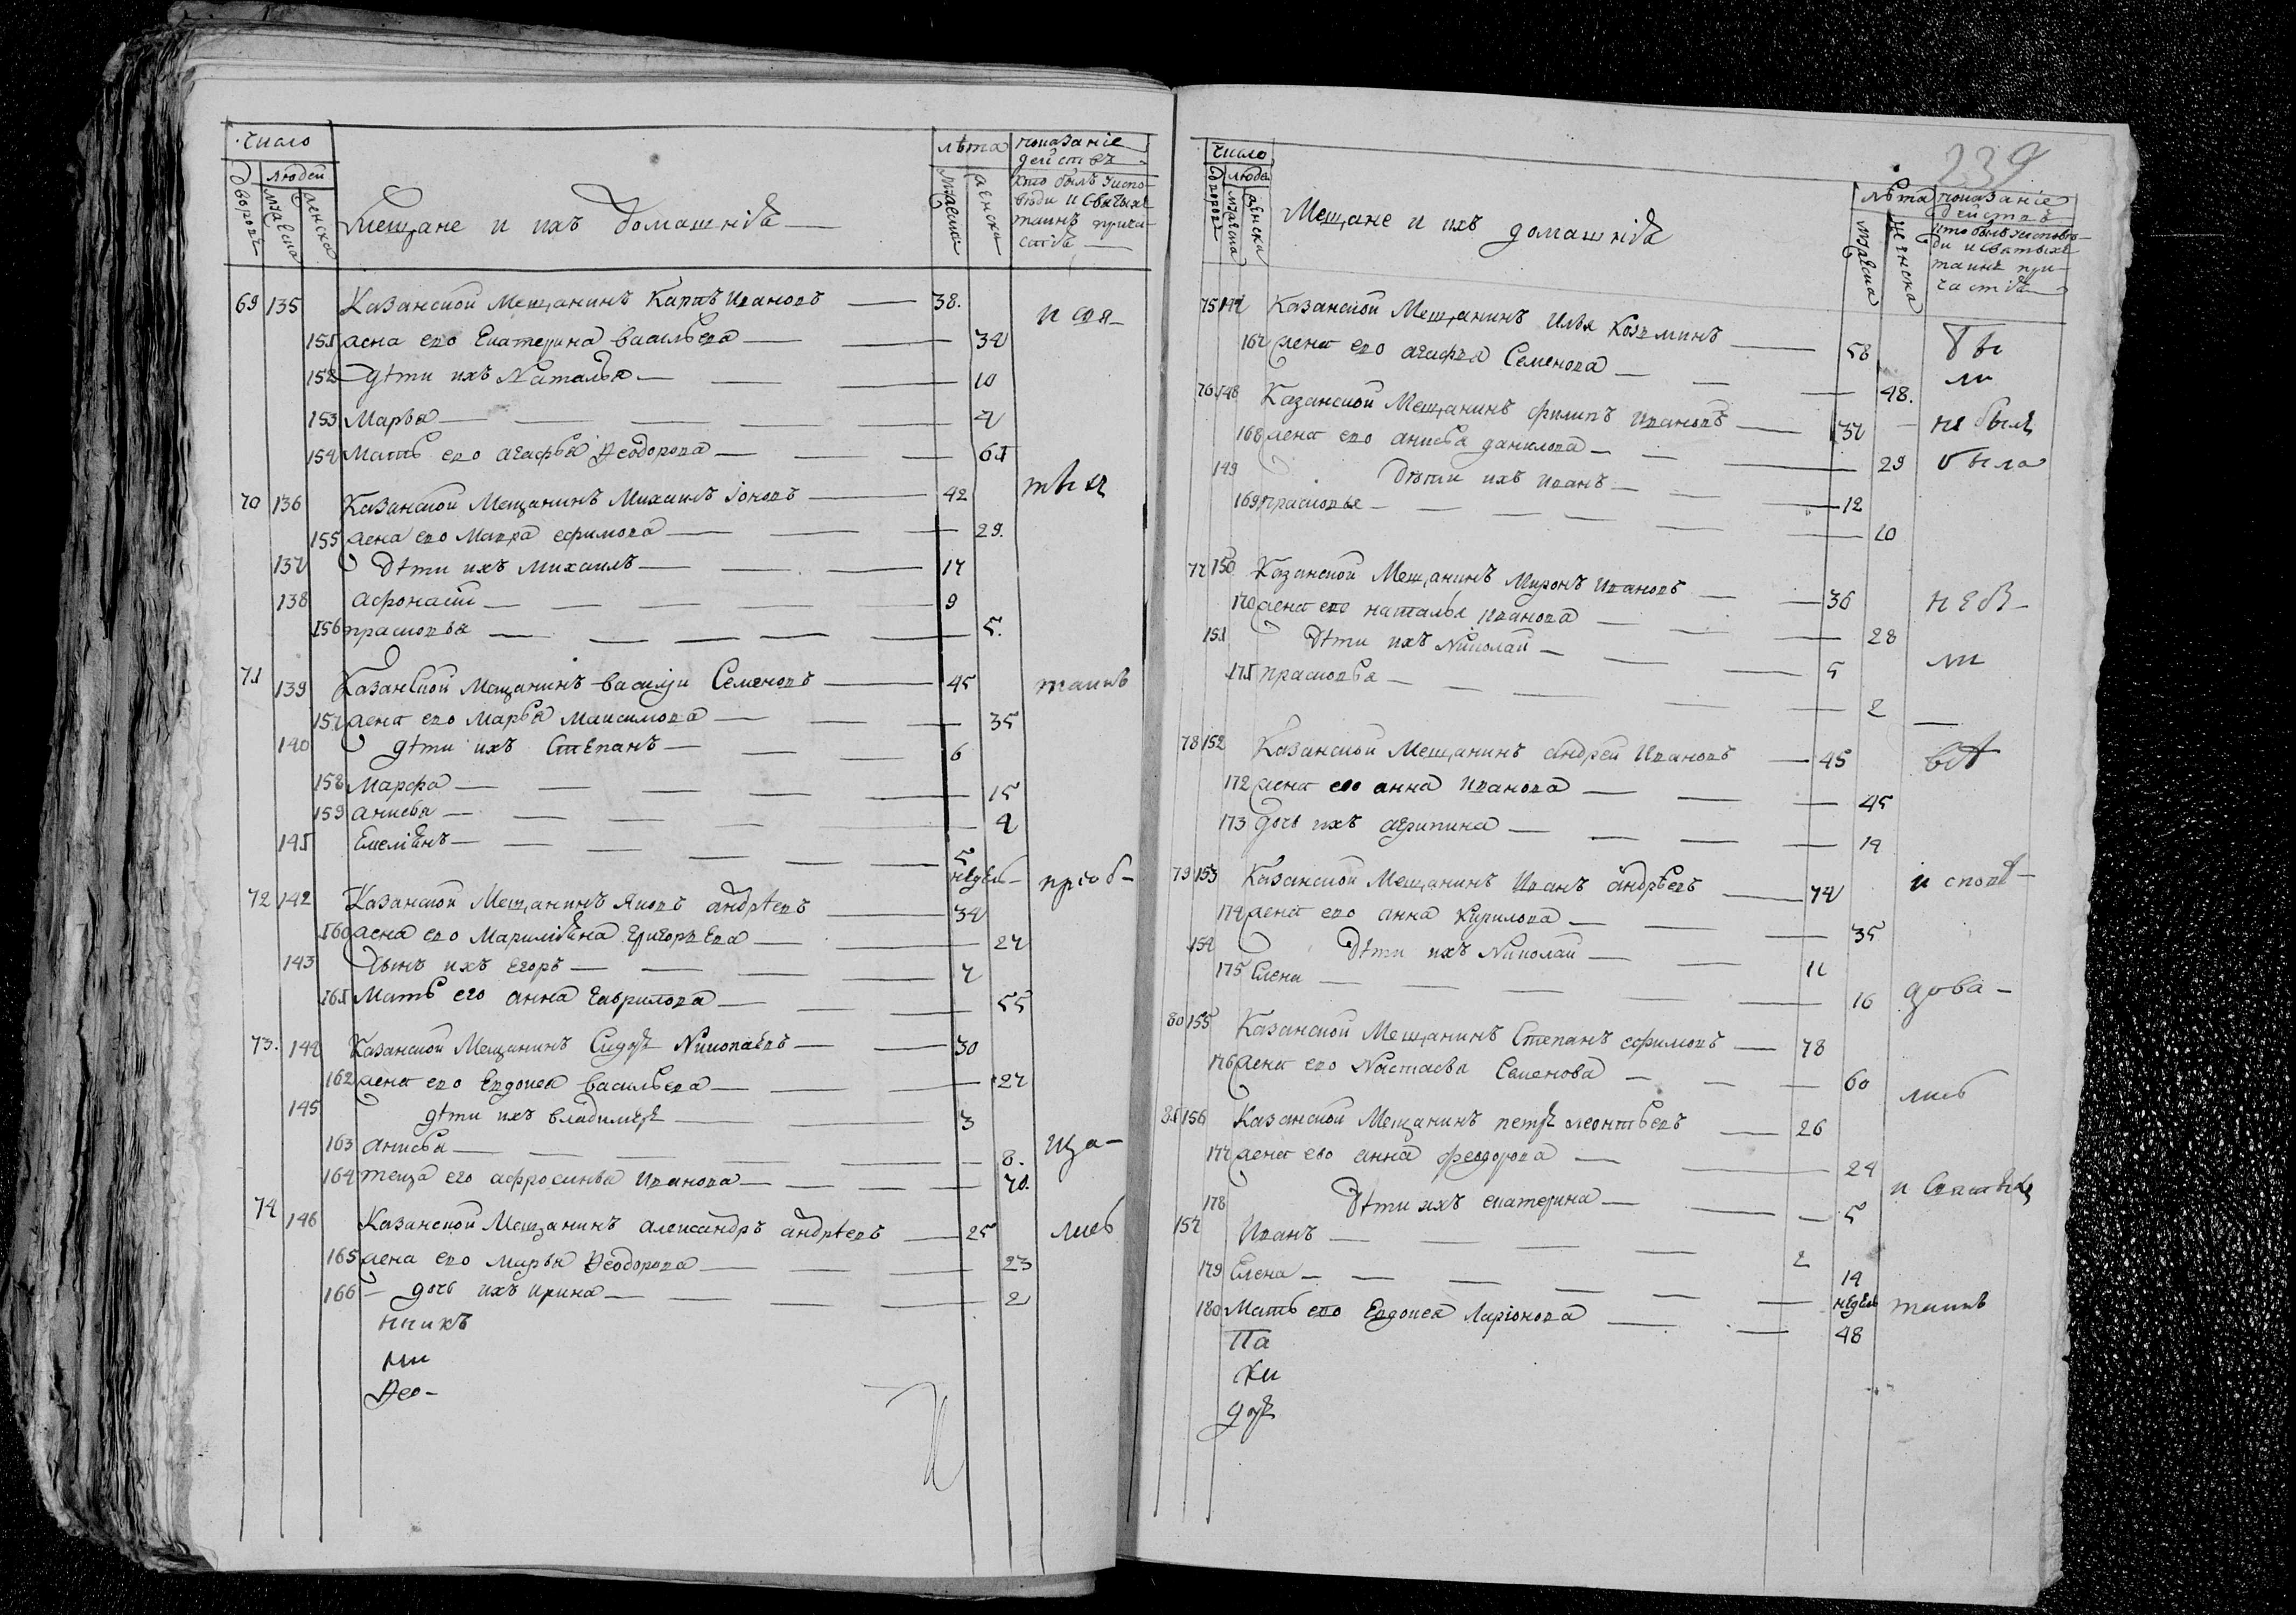 число
лѣта
показаніе действъ
дворовъ
людей
мужеска
женска
Мещане и ихъ домашнія
мужеска
женска
кто былъ у испо-
вѣди и святыхъ
таинъ прича-
стія
69 135 Казанской Мещанинъ Карпъ Ивановъ 38.
и свя-
151 жена ево Екатерина васильева 34
152 дѣти ихъ Наталья 10
153 Марья 4
154 Мать ево агафья Ѳеодорова 61
70 136 Казанской Мещанинъ Михаилъ Іоновъ 42
тыхъ
155 жена ево Мавра ефимова 29.
137 дѣти ихъ Михаилъ 17
138 афонасій 9
156 прасковья 5.
71 139 Казанской Мещанинъ василіи Семеновъ 45
таинъ
157 жена ево Марья Максимова 35
140 дѣти ихъ Степанъ 6
158 Марфа 15
159 анисья 4
141 Емеліянъ 5 недель
приоб-
72 142 Казанской Мещанинъ Яковъ андрѣевъ 34
160 жена ево Маримьяна григорьева 27
143 Сынъ ихъ Егоръ 7
161 Мать его анна гаврилова 55
73. 144 Казанской Мещанинъ Сидоръ Николаевъ 30
162 жена ево Евдокея васильева 27
145 дѣти ихъ владимеръ 3
163 анисья 8.
ща-
164 теща его афросинья Иванова 70.
74 146 Казанской Мещанинъ александръ андрѣевъ 25
лись
165 жена ево марья Ѳеодорова 23
166 дочь ихъ ирина 2
никъ
ми
Ѳео-
239
число
лѣта
показаніе действъ
дворовъ
людей
мужеска
женска
Мещане и ихъ домашнія
мужеска
женска
кто былъ у исповѣ-
ди и святыхъ
таинъ при-
частія
75 147 Казанской Мещанинъ Илья Козминъ 58
бы
167 жена ево агафья Семенова 48.
ли
76 148 Казанской Мещанинъ филипъ Ивановъ 37
не былъ
168 жена ево анисья данилова 29
была
149 Дѣти ихъ иванъ 12
169 прасковья 10
77 150 Казанской Мещанинъ Миронъ Ивановъ 36
небы-
170 жена ево наталья иванова 28
151 дѣти ихъ Николай 5
ли
171 прасковья 2
78 152 Казанской Мещанинъ андрей Ивановъ 45
172 жена ево анна Иванова 45
173 дочь ихъ агрипина 14
79 153 Казанской Мещанинъ Иванъ андрѣевъ 74
исповѣ-
174 жена ево анна Кирилова 35
154 дѣти ихъ Николай 11
175 Елена 16
дова-
80 155 Казанской Мещанинъ Степанъ ефимовъ 78
176 жена ево Настасья Семенова 60
лись
81 156 Казанской Мещанинъ петръ леонтьевъ 26
177 жена ево анна феодорова 24
и святыхъ
178 Дѣти ихъ екатерина 5
157 Иванъ 2
179 Елена 14 недель
180 Мать ево Евдокея Ларіонова 48
таинъ
Па
ки
доръ